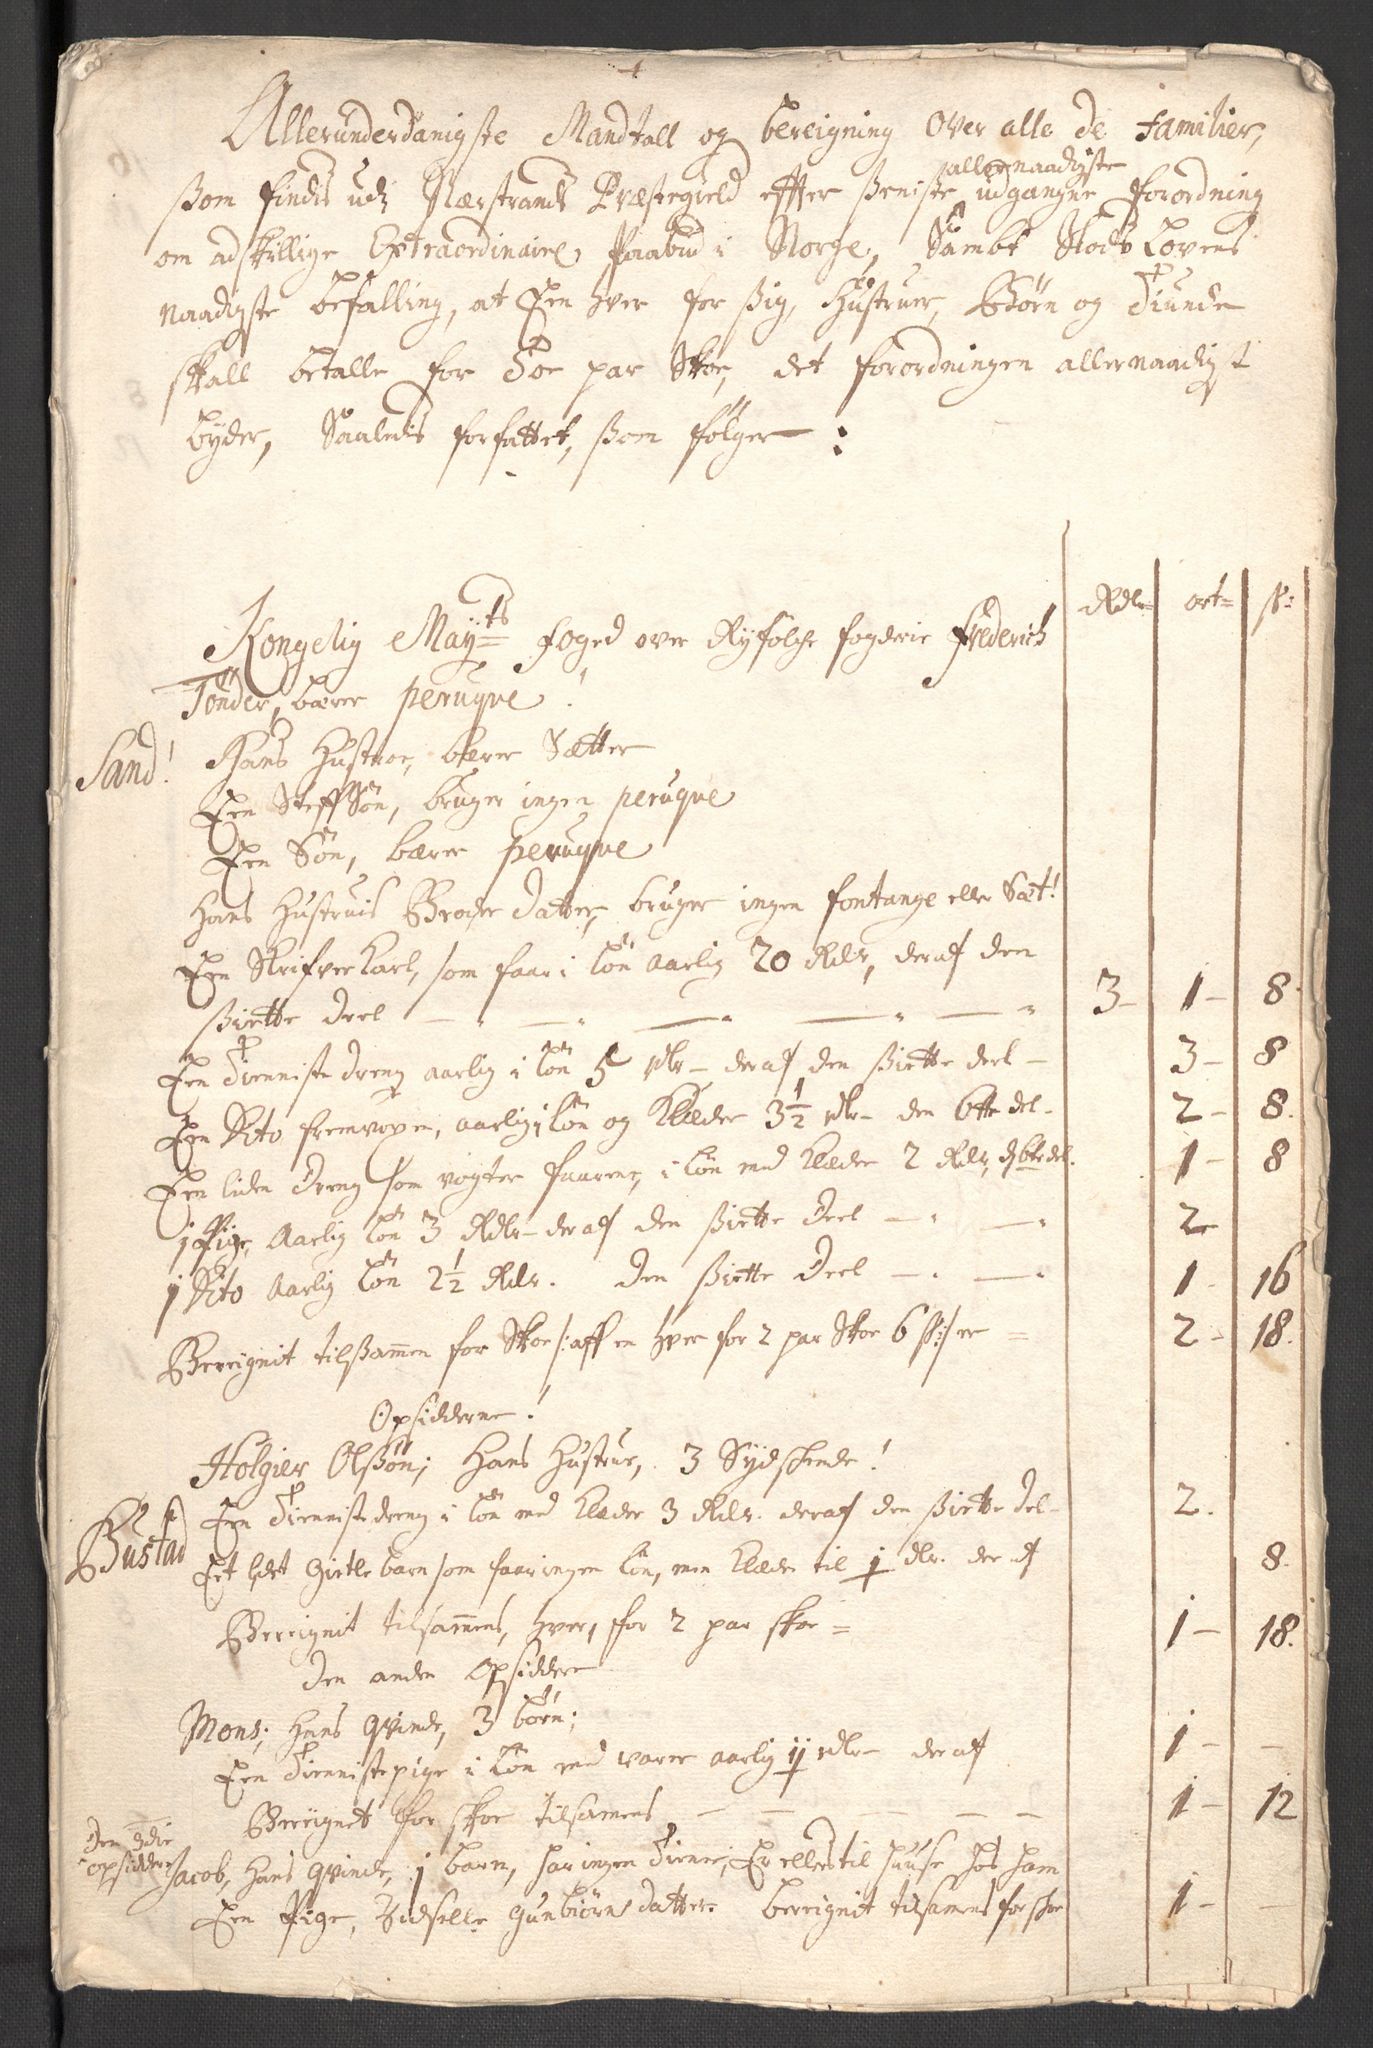 Allerunderdanigste Mandtall og bereigning Over alle de Familier,
ßom findis udi Nærstrands Præstegield effter ßeniste allernaadigste udgangne forordning
om adskillige Extraordinaire Paabud i Norge, Sambt Slods Lovens
Naadigste befalling, at Een hver for ßig, Hustruer, Børn og Tiunde
skall betalle for Toe par Skoe, det forordningen allernaadigst
byder, Saaledis forfattet, ßom følger:
Rdlr ort sk:
Kongelig May:ts foged over Ryfølche fogderie Friderich
Tønder, bærer peruqve!
Sand! Hans Hustroe, bærer Sætter
Een Steff Søn, bruger ingen peruqve
Een Søn, bærer peruqve
Hans Hustruis Broder datter, bruger ingen fontange eller Sæt!
Een Skrifverkarl, som faar i løn aarlig 20 Rdlr, deraf den
ßiette deel 3 - 1 - 8
Een Tienniste dreng aarlig i løn 5 rdlr - deraf den ßiette deel - 3 - 8
Een Dito fremvoxen, aarlig i løn og Klæder 3½ rdlr - den 6tte del - 2 - 8
Een liden dreng som vogter faarene, i løn med klæder 2 Rdlr, d 6te del. 1 - 8
1 Pige, Aarlig løn 3 Rdlr - deraf den ßiette deel 2
1 Dito Aarlig løn 2½ Rdlr. den ßiette deel 1 - 16
Bereignit tilßammen for Skoe /: aff en hver for 2 par Skoe 6 sk :/ er = 2 - 18.
Opsidderne!
Holgier Olßøn; Hans Hustrue, 3 Sydskende!
Bustad Een Tienniste dreng i løn med klæder 3 Rdlr. deraf den ßiette del - 2.
Eet lidet Giette barn som faar ingen løn, men klæder til 1 dlr. der af 8.
Bereignit tilsammens, hver, for 2 par skoe = 1 - 18.
Den anden Opsidder
Mons; Hans qvinde, 3 børn;
Een Tienniste pige i løn med varer aarlig 1½ rdlr - deraf 1 - -
Bereignet for skoe tilsamens - - - 1 - 12
Den 3die opsidder Jacob, Hans qvinde, 1 barn, har ingen Tiener, Er ellers til huuse hos ham
Een Pige, Zidselle Gunbiørns datter. bereignit tilsamens for skoe 1 - -